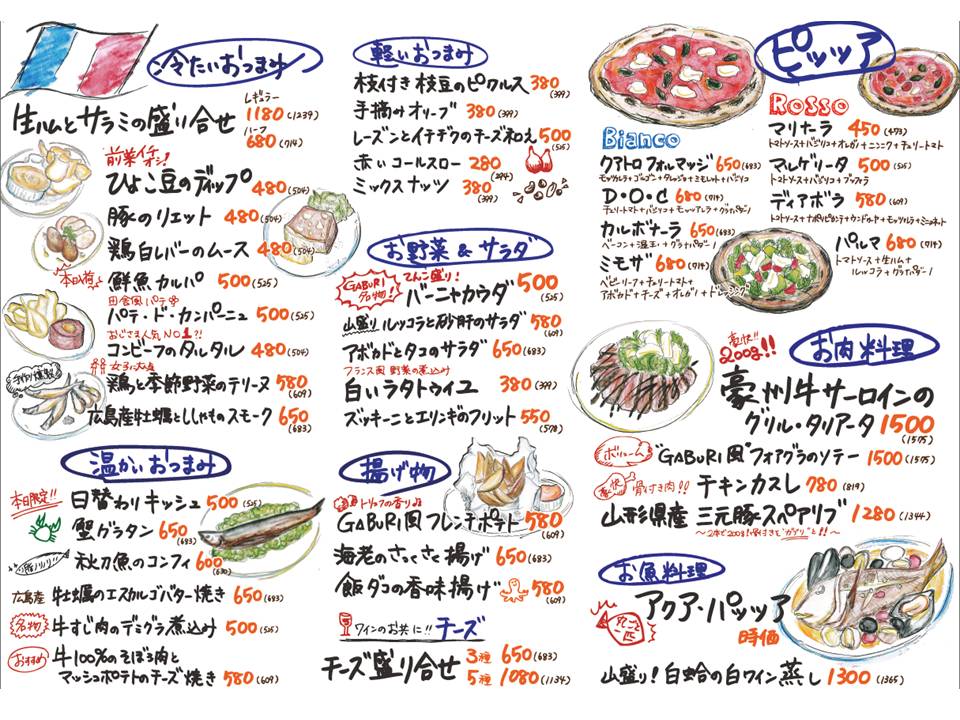 冷たいおつまみ
レギュラー
生ハムとサラミの盛り合せ 1180(1239)
ハーフ
680(714)
前菜イチオシ!
ひよこ豆のディップ 480(504)
豚のリエット 480(504)
鶏白レバーのムース 480(504)
本日の
鮮魚カルパ 500(525)
田舎風パテ
パテ・ド・カンパーニュ 500(525)
おじさま人気NO1?!
コンビーフのタルタル 480(504)
女子に人気
鶏と季節野菜のテリーヌ 580(609)
手作り燻製
広島産牡蠣とししゃものスモーク 650(683)
温かいおつまみ
本日限定!!
日替わりキッシュ 500(525)
蟹グラタン 650(683)
秋刀魚のコンフィ 600(630)
広島産 牡蠣のエスカルゴバター焼き 650(683)
名物 牛すじ肉のデミグラ煮込み 500(525)
おすすめ 牛100%のそぼろ肉と
マッシュポテトのチーズ焼き 580(609)
軽いおつまみ
枝付き枝豆のピクルス 380(399)
手摘みオリーブ 380(399)
レーズンとイチヂクのチーズ和え 500(525)
赤いコールスロー 280(294)
ミックスナッツ 380(399)
お野菜&サラダ
GABURI名物! てんこ盛り!
バーニャカウダ 500(525)
山盛りルッコラと砂肝のサラダ 580(609)
アボカドとタコのサラダ 650(683)
フランス風 野菜の煮込み
白いラタトゥイユ 380(399)
ズッキーニとエリンギのフリット 550(578)
揚げ物
トリュフの香り
GABURI風フレンチポテト 580(609)
海老のさくさく揚げ 650(683)
飯ダコの香味揚げ 580(609)
ワインのお共に!! チーズ
チーズ盛り合せ 3種 650(683)
5種 1080(1134)
ピッツァ
Bianco
クアトロフォルマッジ 650(683)
モッツァレラ+ゴルゴン+タレッジ+ミモレット+バジリコ
D・O・C 680(714)
チェリートマト+バジリコ+モッツアレラ+グラナパダーノ
カルボナーラ 650(683)
ベーコン+温玉+グラナパダーノ
ミモザ 680(714)
ベビーリーフ+チェリートマト+
アボカド+チーズ+オレガノ+ドレッシング
Rosso
マリナーラ 450(473)
トマトソース+バジリコ+オレガノ+ニンニク+チェリートマト
マルゲリータ 500(525)
トマトソース+バジリコ+ブッファラ
ディアボラ 580(609)
パルマ 680(714)
トマトソース+生ハム+
ルッコラ+グラナパダーノ
お肉料理
豪快!!
200g!!
豪州牛サーロインの
グリル・タリアータ 1500(1575)
ボリューム
"GABURI風"フォアグラのソテー 1500(1575)
豪快 骨付き肉!!
チキンカスレ 780(819)
山形県産 三元豚スペアリブ 1280(1344)
〜2本で200g!骨付きで"ガブリ"と!!〜
お魚料理
丸ごと一匹
アクア・パッツァ
時価
山盛り!白蛤の白ワイン蒸し 1300(1365)